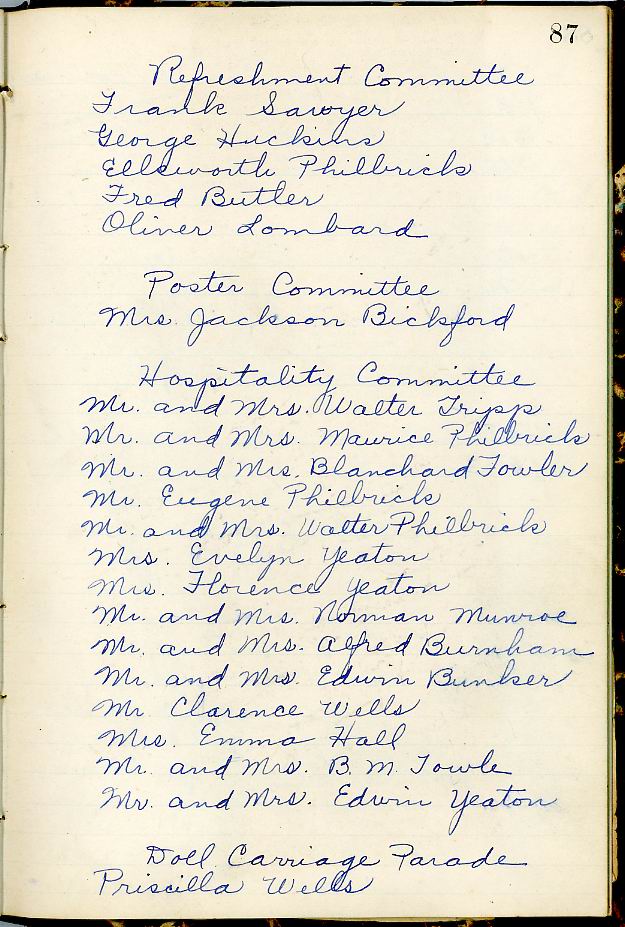 87
Refreshment Committee
Frank Sawyer
George Huckins
Ellsworth Philbrick
Fred Butler
Oliver Lombard
Poster Committee
Mrs. Jackson Bickford
Hospitality Committee
Mr. and Mrs. Walter Tripp
Mr. and Mrs. Maurice Philbrick
Mr. and Mrs. Blanchard Fowler
Mr. Eugene Philbrick
Mr. and Mrs. Walter Philbrick
Mrs. Evelyn Yeaton
Mrs. Florence Yeaton
Mr. and Mrs. Norman Munroe
Mr. and Mrs. Alfred Burnham
Mr. and Mrs. Edwin Bunker
Mr. Clarence Wells
Mrs. Emma Hall
Mr. and Mrs. B. M. Towle
Mr. and Mrs. Edwin Yeaton
Doll Carriage Parade
Priscilla Wells